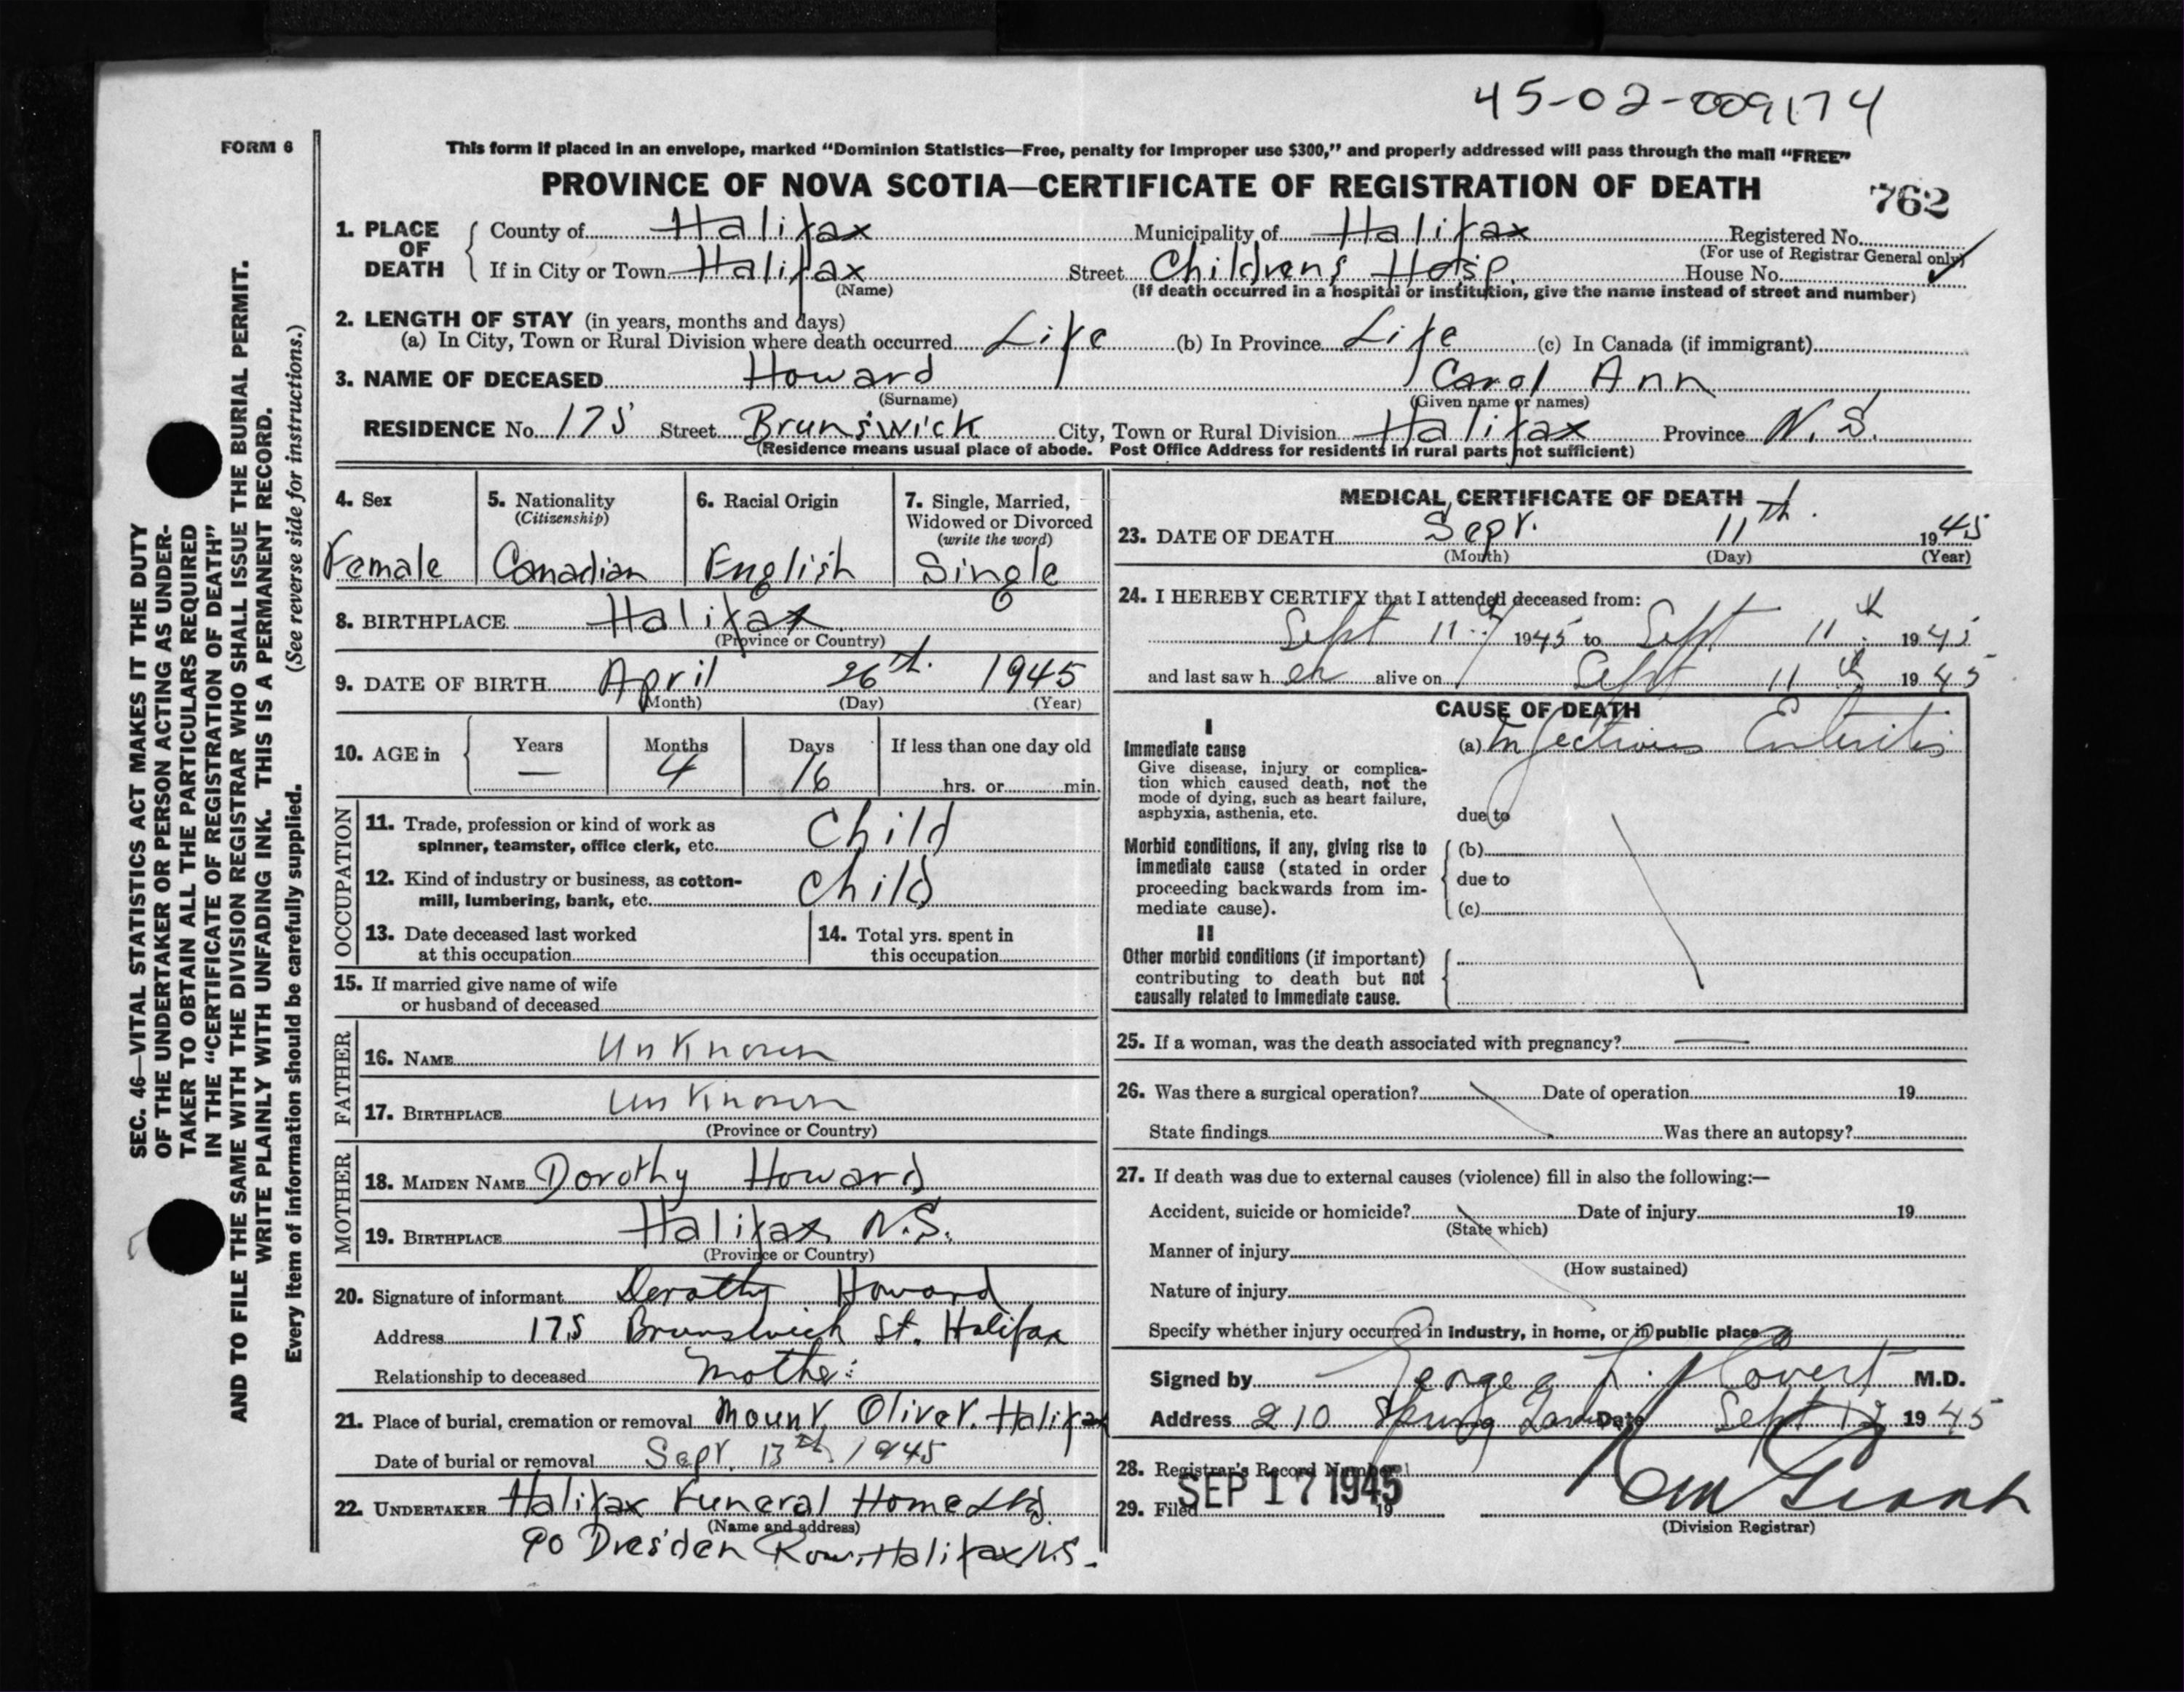 45-02-009174
FORM 6
This form if placed in an envelope, marked “Dominion Statistics—Free, penalty for improper use $300,” and properly addressed will pass through the mail “FREE”
PROVINCE OF NOVA SCOTIA—CERTIFICATE OF REGISTRATION OF DEATH
762
1. PLACE OF DEATH
County of Halifax Municipality of Halifax Registered No.
(For use of Registrar General only)
If in City or Town Halifax Street Childrens Hosp. House No.
(Name) (If death occurred in a hospital or institution, give the name instead of street and number)
2. LENGTH OF STAY (in years, months and days)
(a) In City, Town or Rural Division where death occurred Life (b) In Province Life (c) In Canada (if immigrant)
3. NAME OF DECEASED Howard Carol Ann
(Surname) (Given name or names)
RESIDENCE No. 175 Street Brunswick City, Town or Rural Division Halifax Province N.S.
(Residence means usual place of abode. Post Office Address for residents in rural parts not sufficient)
4. Sex
Female
5. Nationality
(Citizenship)
Canadian
6. Racial Origin
English
7. Single, Married,
Widowed or Divorced
(write the word)
Single
8. BIRTHPLACE Halifax
(Province or Country)
9. DATE OF BIRTH April 26th. 1945
(Month) (Day) (Year)
10. AGE in
Years Months Days If less than one day old
— 4 16 hrs. or min.
OCCUPATION
11. Trade, profession or kind of work as
spinner, teamster, office clerk, etc. Child
12. Kind of industry or business, as cotton-
mill, lumbering, bank, etc. Child
13. Date deceased last worked
at this occupation
14. Total yrs. spent in
this occupation
15. If married give name of wife
or husband of deceased
FATHER
16. NAME Unknown
17. BIRTHPLACE Unknown
(Province or Country)
MOTHER
18. MAIDEN NAME Dorothy Howard
19. BIRTHPLACE Halifax N.S.
(Province or Country)
20. Signature of informant Dorothy Howard
Address 175 Brunswick St. Halifax
Relationship to deceased Mother
21. Place of burial, cremation or removal Mount Olivet. Halifax
Date of burial or removal Sept. 13th 1945
22. UNDERTAKER Halifax Funeral Home Ltd.
(Name and address)
90 Dresden Row. Halifax N.S.
MEDICAL CERTIFICATE OF DEATH
23. DATE OF DEATH Sept. 11th. 1945
(Month) (Day) (Year)
24. I HEREBY CERTIFY that I attended deceased from:
Sept 11th 1945 to Sept 11th 1945
and last saw her alive on Sept 11th 1945
CAUSE OF DEATH
I
Immediate cause
Give disease, injury or complica-
tion which caused death, not the
mode of dying, such as heart failure,
asphyxia, asthenia, etc.
(a) Infectious Enteritis
due to
Morbid conditions, if any, giving rise to
immediate cause (stated in order
proceeding backwards from im-
mediate cause).
(b)
due to
(c)
II
Other morbid conditions (if important)
contributing to death but not
causally related to immediate cause.
25. If a woman, was the death associated with pregnancy? —
26. Was there a surgical operation? Date of operation 19
State findings Was there an autopsy?
27. If death was due to external causes (violence) fill in also the following:—
Accident, suicide or homicide? Date of injury 19
(State which)
Manner of injury
(How sustained)
Nature of injury
Specify whether injury occurred in industry, in home, or in public place
Signed by George L. Covert M.D.
Address 210 Spring Date Sept 12 1945
28. Registrar's Record Number
29. Filed SEP 17 1945 19
(Division Registrar)
SEC. 46—VITAL STATISTICS ACT MAKES IT THE DUTY
OF THE UNDERTAKER OR PERSON ACTING AS UNDER-
TAKER TO OBTAIN ALL THE PARTICULARS REQUIRED
IN THE “CERTIFICATE OF REGISTRATION OF DEATH”
AND TO FILE THE SAME WITH THE DIVISION REGISTRAR WHO SHALL ISSUE THE BURIAL PERMIT.
WRITE PLAINLY WITH UNFADING INK. THIS IS A PERMANENT RECORD.
Every item of information should be carefully supplied. (See reverse side for instructions.)